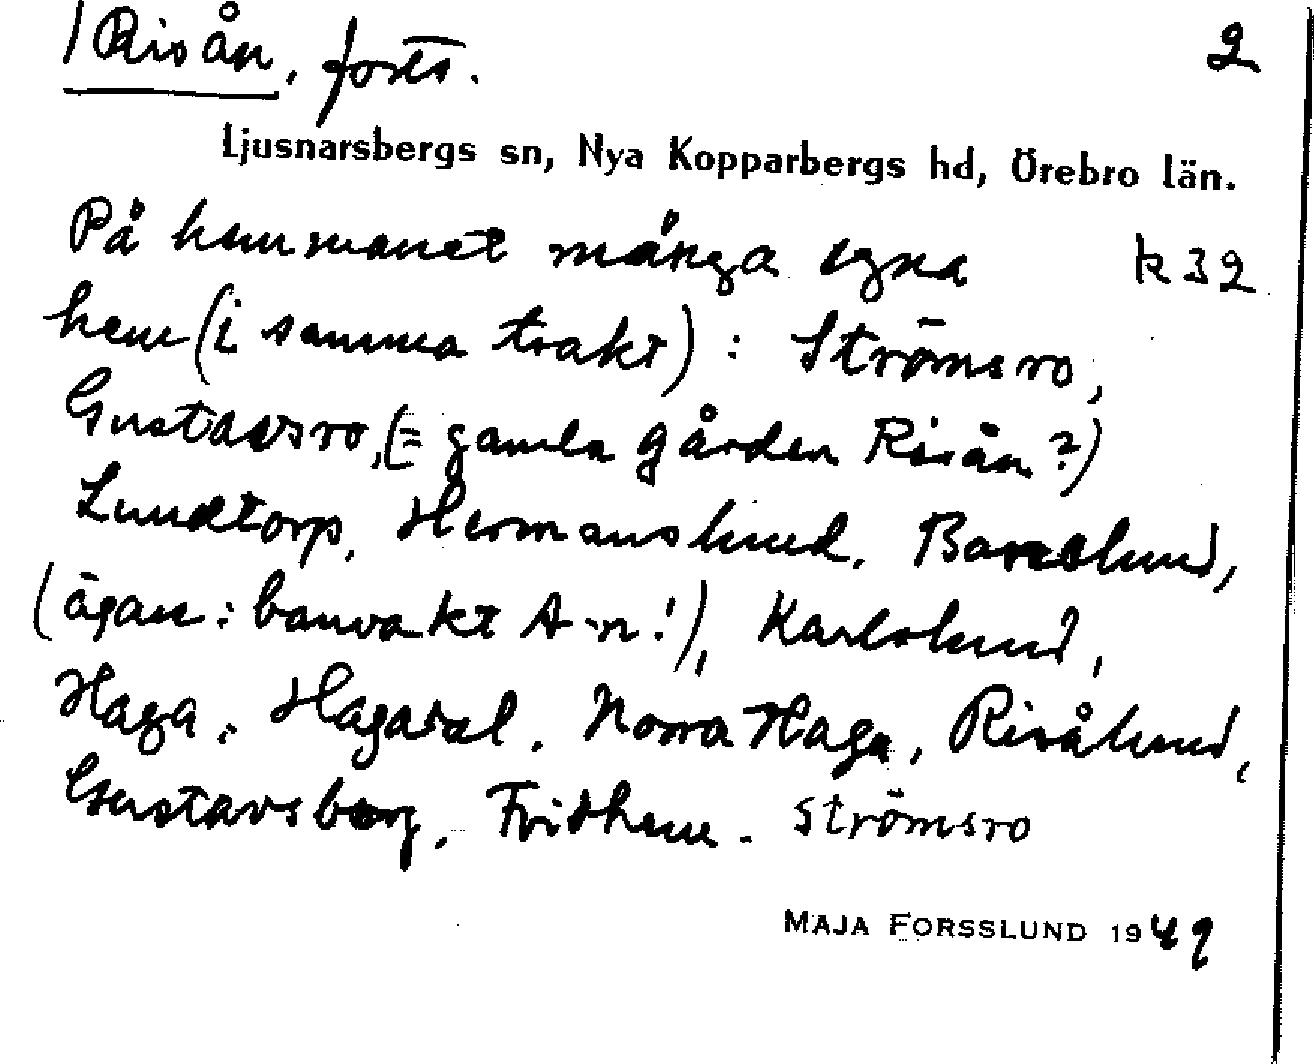 /Risån, forts. 2
Ljusnarsbergs sn, Nya Kopparbergs hd, Örebro län.
På hemmanet många egna k 32
hem (i samma trakt) : Strömsro,
Gustavsro, (= gamla gården Risån?)
Lundtorp, Hermanslund, Banelund,
(ägare: banvakt A-n!), Karlslund,
Haga, Hagadal, Norra Haga, Risålund,
Gustavsborg, Fridhem. Strömsro
MAJA FORSSLUND 1949